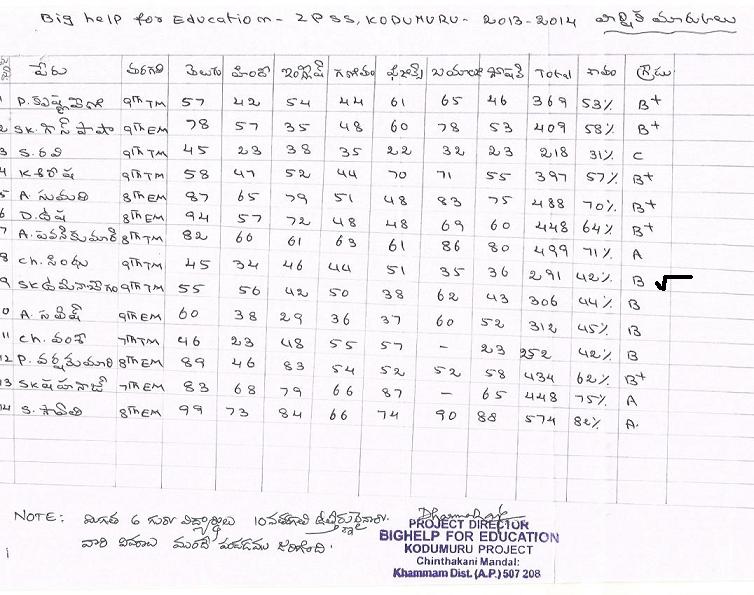 Big help for Education - ZPSS, KODUMURU - 2013-2014 వార్షిక మార్కులు
పేరు తరగతి తెలుగు హిందీ ఇంగ్లీష్ గణితం ఫిజిక్స్ బయాలజీ సోషల్ Total శాతం గ్రేడు
1 P. కృష్ణవేణి 9th TM 57 42 54 44 61 65 46 369 53% B+
2 SK. గౌస్ పాషా 9th EM 78 57 35 48 60 78 53 409 58% B+
3 S. రవి 9th TM 45 23 38 35 22 32 23 218 31% C
4 K. శిరీష 9th TM 58 47 52 44 70 71 55 397 57% B+
5 A. సుమతి 8th EM 87 65 79 51 48 83 75 488 70% B+
6 D. ఉష 8th EM 94 57 72 48 48 69 60 448 64% B+
7 A. పవన్ కుమార్ 8th TM 82 60 61 63 61 86 80 499 71% A
8 Ch. సింధు 9th TM 45 34 46 44 51 35 36 291 42% B
9 SK. 9th TM 55 56 42 50 38 62 43 306 44% B
10 A. 9th EM 60 38 29 36 37 60 52 312 45% B
11 Ch. వంశీ 7th TM 46 23 48 55 57 - 23 252 42% B
12 P. 8th EM 89 46 83 54 52 52 58 434 62% B+
13 SK. షహనాజ్ 7th EM 83 68 79 66 87 - 65 448 75% A
14 S. 8th EM 99 73 84 66 74 90 88 574 82% A.
NOTE: మిగతా 6 గురు విద్యార్థులు 10వ తరగతి ఉత్తీర్ణులైనారు.
వారి వివరాలు ముందే పంపడము జరిగింది.
PROJECT DIRECTOR
BIGHELP FOR EDUCATION
KODUMURU PROJECT
Chinthakani Mandal:
Khammam Dist. (A.P.) 507 208